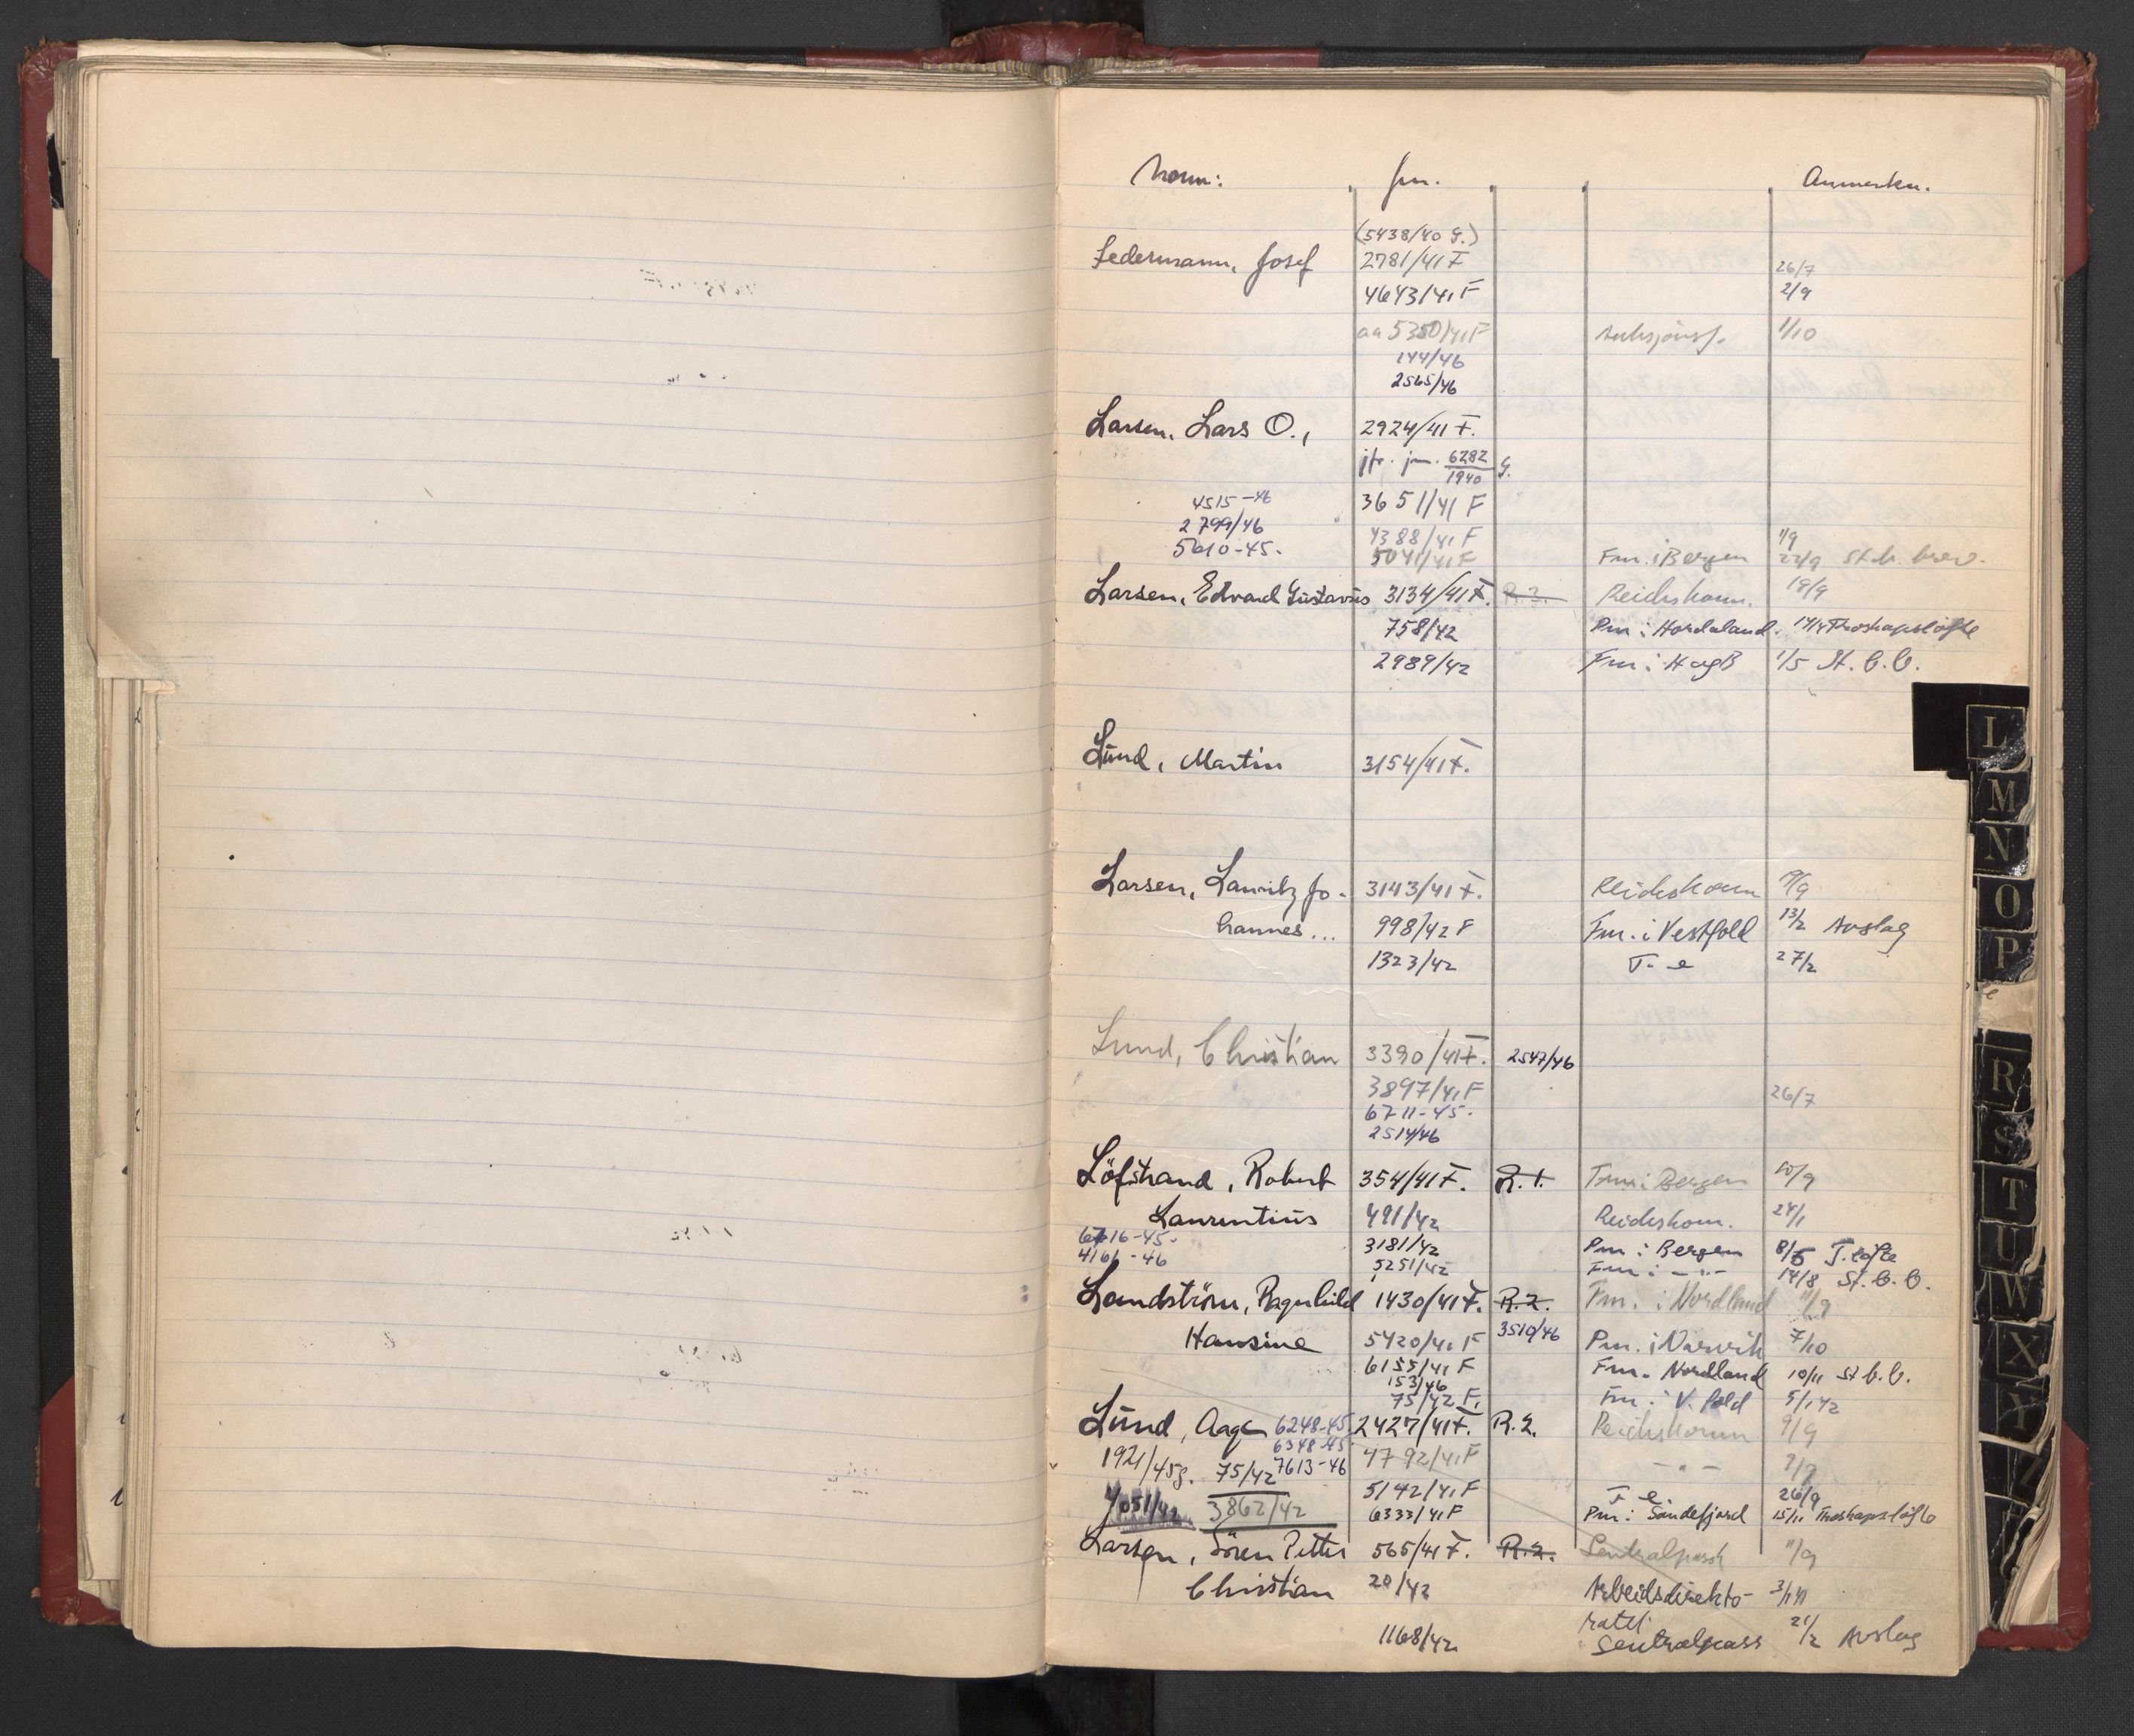 Navn: jnr. Anmerkn.
(5438/40 G.)
Ledermann, Josef 2781/41 F 26/7
4643/41 F 2/9
aa 5350/41 F Auksjonsf. 1/10
144/46
2565/46
Larsen, Lars O., 2924/41 F.
jfr. jnr. 6282/1940 G.
4515-46 3651/41 F
2799/46 4388/41 F 1/9
5610-45. 5041/41 F Fm. i Bergen 22/9 St.b. brev.
Larsen, Edvard Gustavus 3134/41 F. R.2. Reichskom. 18/9
758/42 Pm i Hordaland. 14/4 Troskapsløfte
2989/42 Fm i H og B 1/5 St. b. b.
Lund, Martin 3154/41 F.
Larsen, Lauritz Jo- 3143/41 F. Reichskom 19/9
hannes... 998/42 F Fm. i Vestfold 13/2 Avslag
1323/42 T. e 27/2
Lund, Christian 3390/41 F. 2547/46
3897/41 F 26/7
6711-45.
2514/46
Löfstrand, Robert 354/41 F. R.1. Fm i Bergen 10/9
Laurentius 491/42 Reichskom. 24/1
6716-45. 3181/42 Pm i Bergen 8/5 T.løfte
4166-46 5251/42 Fm i -"- 14/8 St. b. b.
Landström, Ragnhild 1430/41 F. R.2. Fm. i Nordland 11/9
3510/46
Hansine 5420/41 F Pm. i Narvik 7/10
6155/41 F Fm. Nordland 10/11 St b. b.
153/46
75/42 F. Fm. i V. fold 5/1 42
Lund, Aage 6248-45. 2427/41 F. R.2. Reichskomm 9/9
6348-45
1921/45 g. 75/42 7613-46 4792/41 F -"-
5142/41 F T e. 26/9
7051/42 3862/42 6333/41 F Pm i Sandefjord 15/11 Troskapsløfte
Larsen, Sören Petter 565/41 F. R.2. Sentralpassk 11/9
Christian 20/42 Arbeidsdirekto-
ratet
1168/42 Sentralpass 21/2 Avslag
L
M
N
O
P
R
S
T
U
W
X
Y
Z